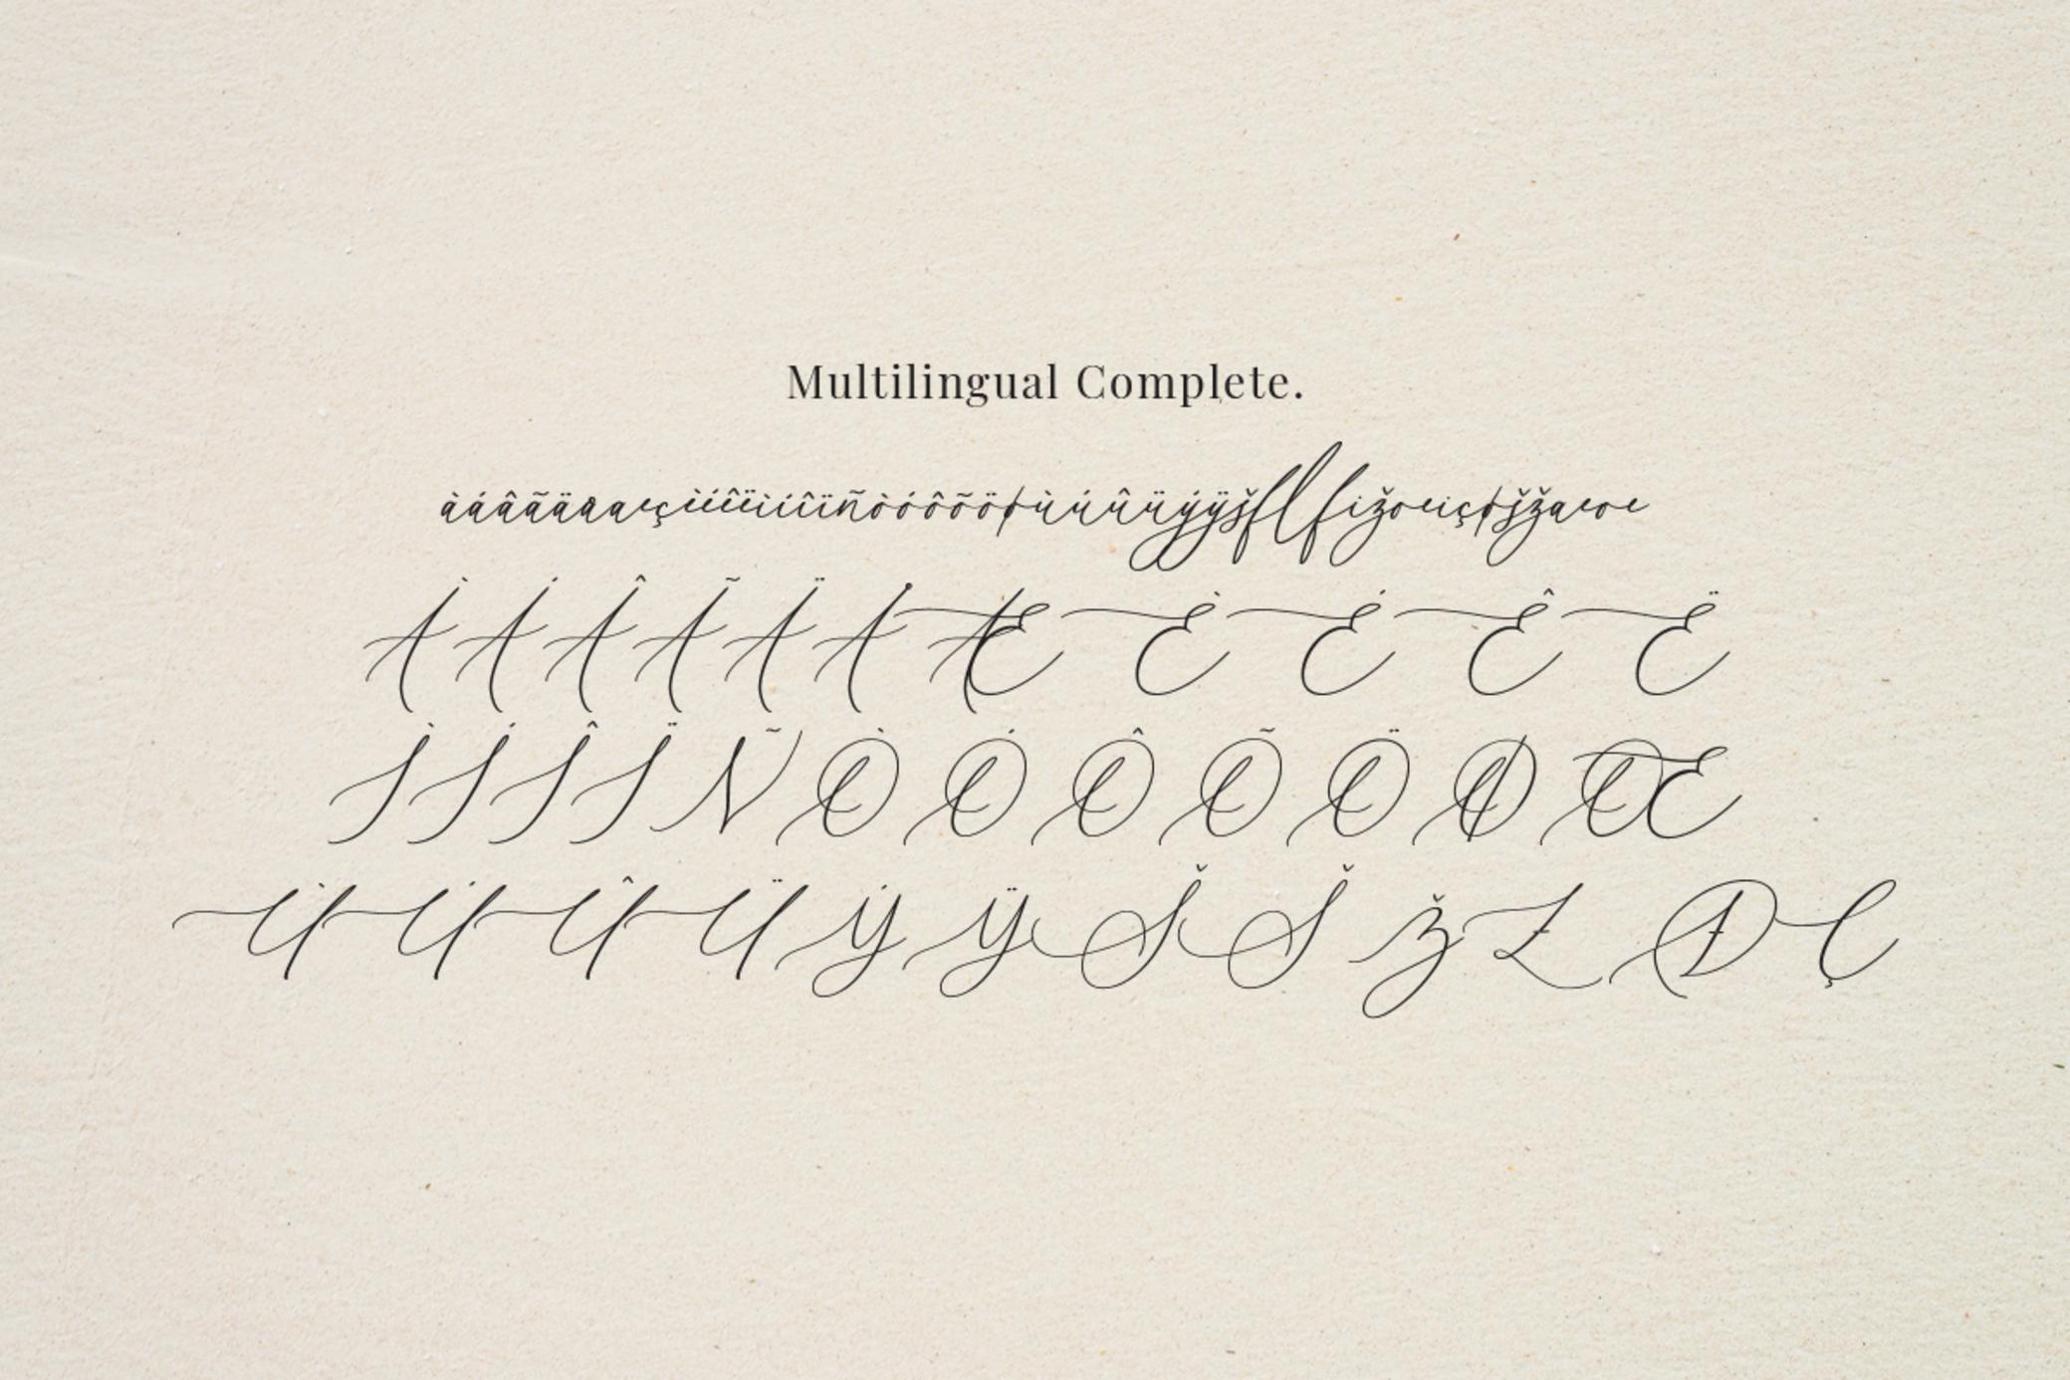 Multilingual Complete.
àáâãäåaæçèéêëìíîïñòóôõöøùúûüýÿšflfižœıçøšžaeoe
ÀÁÂÃÄÅÆÈÉÊË
ÌÍÎÏÑÒÓÔÕÖØŒ
ÙÚÛÜÝŸŠŠŽŁÐÇ